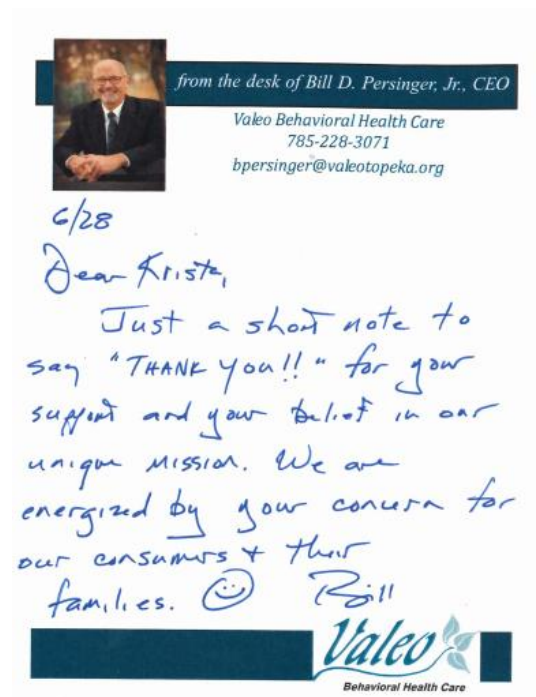 from the desk of Bill D. Persinger, Jr., CEO
Valeo Behavioral Health Care
785-228-3071
bpersinger@valeotopeka.org
6/28
Dear Krista,
Just a short note to
say "THANK YOU!!" for your
support and your belief in our
unique mission. We are
energized by your concern for
our consumers + their
families. ☺ Bill
Valeo
Behavioral Health Care